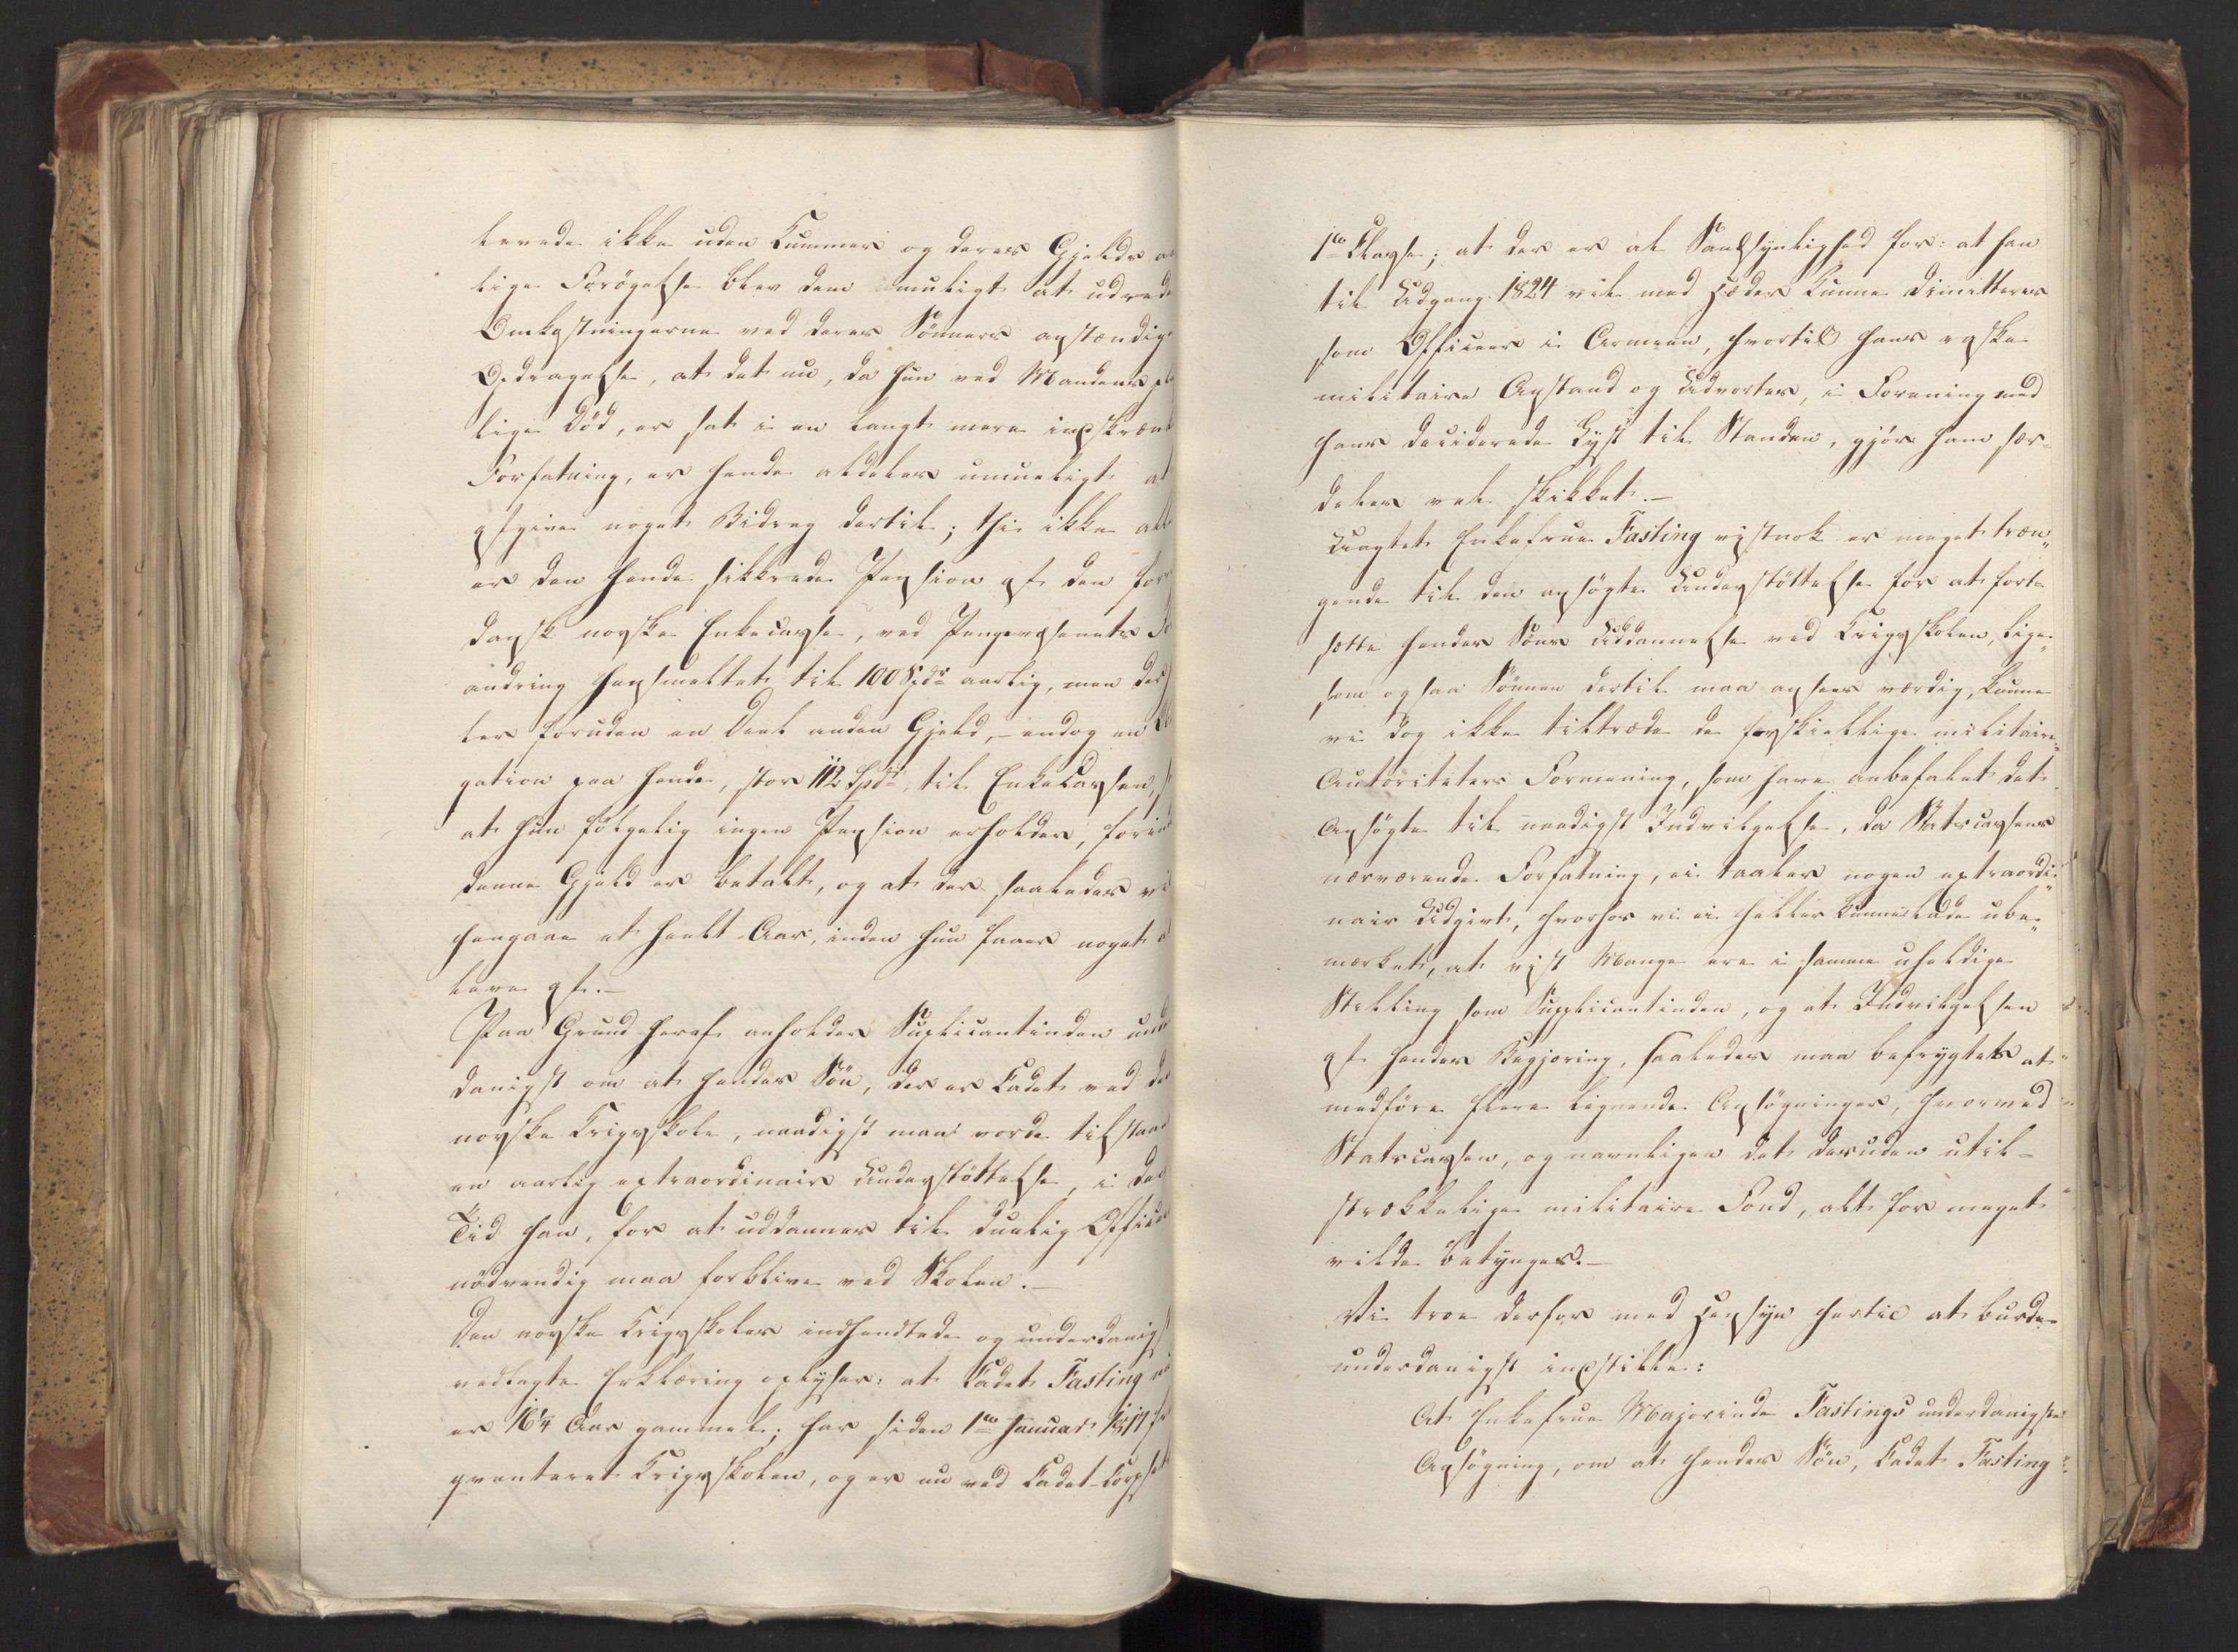 levede ikke uden Kummer og deres Gjelds
lige Forögelse blev dem umuligt at udrede
Omkostningerne ved deres Sönners anstændige
Opdragelse, at det nu, da hun ved Mandens
lige Död, er sat i en langt mere indskrænk
Forfatning, er hende aldeles umueligt at
afgive noget Bidrag dertil; thi ikke
er den hende sikkrede Pension af den
dansk norske Enkecasse, ved Pengevæsenets
andring hensmeltet til 100 Spdr aarlig, men
ler foruden en Deel anden Gjeld, – endog en
gation paa hende, stor 112 Spdr, til EnkeCassen,
at hun fölgelig ingen Pension erholder, forind
denne Gjeld er betalt, og at der saaledes
hengaae et heelt Aar, inden hun faaer noget
leve af. –
Paa Grund heraf anholder Suplicantinden
danigst om at hendes Sön, der er Cadet ved
norske Krigsskole, naadigst maa vorde tilstaaet
en aarlig extraordinair Understöttelse, i den
Tid han, for at uddannes til duelig Officier
nödvendig maa forblive ved Skolen. –
Den norske Krigsskoles indhendtede og underdanigst
vedlagte Erklæring oplyser: at Cadet Fasting
er 16¼ Aar gammel; har siden 1te Januar 1817
qventeret Krigsskolen, og er nu ved Cadet-Corpset
1te Classe; at der er al Sandsynlighed for: at han
til Udgang 1824 vil med Hæder kunne dimitteres
som Officeer i Armeen, hvortil hans raske
militaire Anstand og Udvortes, i Forening med
hans deciderede Lyst til Standen, gjör ham sær-
deles vel skikket. –
Uagtet Enkefrue Fasting vistnok er meget træn„
gende til den ansögte Understöttelse for at fort-
sætte hendes Söns Uddannelse ved Krigsskolen, lige„
som ogsaa Sönnen dertil maa ansees værdig, kunne
vi dog ikke tiltræde de forskiellige militaire
Autoriteters Formening, som have anbefalet det
Ansögte til naadigst Indvilgelse, da Statscassens
nærværende Forfatning, ei taaler nogen extraordi„
nair Udgivt, hvorhos vi ei heller kunne lade ube„
mærket, at vist Mange ere i samme uheldige
Stilling som Supplicantinden, og at Indvilgelsen
af hendes Begjæring, saaledes maa befrygtes at
medföre flere lignende Ansögninger, hvormed
Statscassen, og navnligen det desuden util-
strækkelige militaire Fond, alt for meget
vilde betynges. –
Vi troe derfor med Hensyn hertil at burde
underdanigst indstille:
At Enkefrue Majorinde Fastings underdanigste
Ansögning, om at hendes Sön, Cadet Fasting